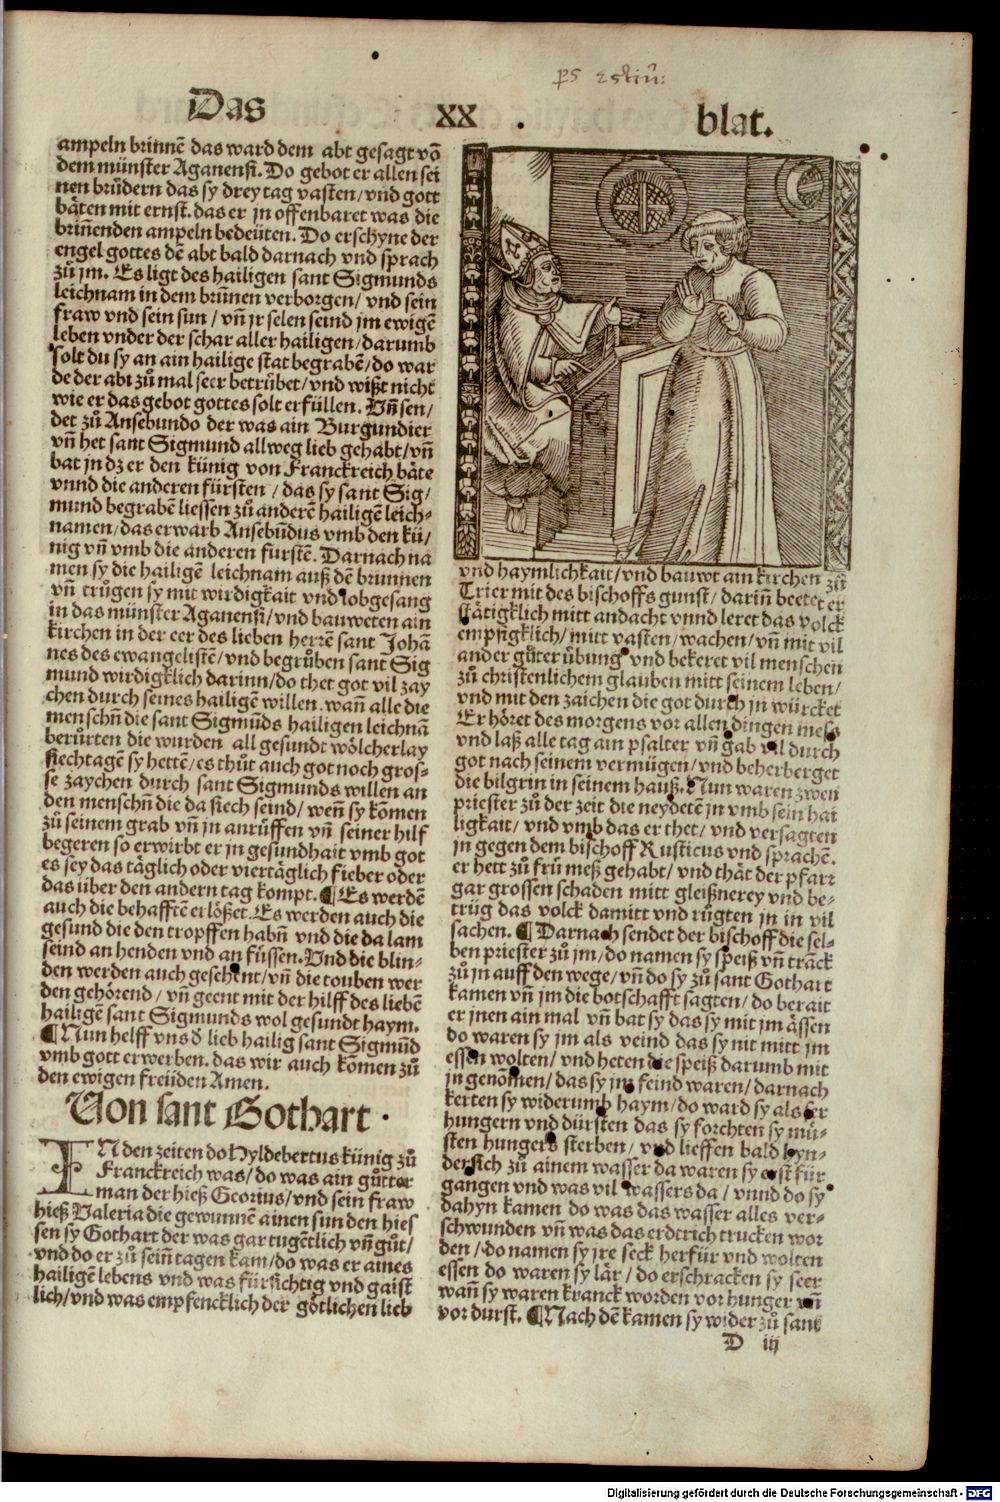 Das XX blat.
ampeln brinnē das ward dem abt gesagt vō
dem münster Aganensi. Do gebot er allen sei
nen brůdern das sy drey tag vasten/ vnd gott
bäten mit ernst. das er jn offenbaret was die
brinnenden ampeln bedeüten. Do erschyne der
engel gottes dē abt bald darnach vnd sprach
zů jm. Es ligt des hailigen sant Sigmunds
leichnam in dem brunnen verborgen/ vnd sein
fraw vnd sein sun/ vñ jr selen seind jm ewigē
leben vnder der schar aller hailigen/ darumb
solt du sy an ain hailige stat begrabē/ do war
de der abt zů mal seer betrübet/ vnd wißt nicht
wie er das gebot gottes solt erfüllen. Vñ sen/
det zů Ansebundo der was ain Burgundier
vñ het sant Sigmund allweg lieb gehabt/ vñ
bat jn dz er den künig von Franckreich bäte
vnnd die anderen fürsten/ das sy sant Sig/
mund begrabē liessen zů anderē hailigē leich-
namen/ das erwarb Ansebūdus vmb den kü/
nig vñ vmb die anderen fürstē. Darnach na
men sy die hailigē leichnam auß dē brunnen
vñ trůgen sy mit wirdigkait vnd lobgesang
in das münster Aganensi/ vnd bauweten ain
kirchen in der eer des lieben herrē sant Johā
nes des ewangelistē/ vnd begrůben sant Sig
mund wirdigklich darinn/ do thet got vil zay
chen durch seines hailigē willen. wañ alle die
menschñ die sant Sigmūds hailigen leichnā
berůrten die wurden all gesundt wölcherlay
siechtagē sy hettē/ es thůt auch got noch gros-
se zaychen durch sant Sigmunds willen an
den menschñ die da siech seind/ weñ sy kōmen
zů seinem grab vñ jn anrůffen vñ seiner hilf
begeren so erwirbt er jn gesundhait vmb got
es sey das täglich oder viertäglich fieber oder
das über den andern tag kompt. ¶ Es werdē
auch die behafftē erlößet. Es werden auch die
gesund die den tropffen habñ vnd die da lam
seind an henden vnd an füssen. Vnd die blin-
den werden auch gesehent/ vñ die touben wer
den gehörend/ vñ geent mit der hilff des liebē
hailigē sant Sigmunds wol gesundt haym.
¶ Nun helff vns d̄ lieb hailig sant Sigmūd
vmb gott erwerben. das wir auch kōmen zů
den ewigen freüden Amen.
Von sant Gothart.
IN den zeiten do Hyldebertus künig zů
Franckreich was/ do was ain gůtter
man der hieß Georius/ vnd sein fraw
hieß Valeria die gewunnē ainen sun den hies
sen sy Gothart der was gar tugētlich vñ gůt/
vnd do er zů seiñ tagen kam/ do was er aines
hailigē lebens vnd was fürsichtig vnd gaist
lich/ vnd was empfencklich der götlichen lieb
vnd haymlichkait/ vnd bauwt ain kirchen zů
Trier mit des bischoffs gunst/ dariñ beetet er
stätigklich mitt andacht vnnd leret das volck
empsigklich/ mitt vasten/ wachen/ vñ mit vil
ander gůter übung vnd bekeret vil menschen
zů christenlichem glauben mitt seinem leben/
vnd mit den zaichen die got durch jn würcket
Er höret des morgens vor allen dingen meß
vnd laß alle tag ain psalter vñ gab vil durch
got nach seinem vermügen/ vnd beherberget
die bilgrin in seinem hauß. Nun waren zwen
priester zů der zeit die neydetē jn vmb sein hai
ligkait/ vnd vmb das er thet/ vnd versagten
jn gegen dem bischoff Rusticus vnd sprachē.
er hett zů frü meß gehabt/ vnd thät der pfarr
gar grossen schaden mitt gleißnerey vnd be-
trüg das volck damitt vnd rügten jn in vil
sachen. ¶ Darnach sendet der bischoff die sel-
ben priester zů jm/ do namen sy speiß vñ trāck
zů jn auff den wege/ vñ do sy zů sant Gothart
kamen vñ jm die botschafft sagten/ do berait
er jnen ain mal vñ bat sy das sy mit jm ässen
do waren sy jm als veind das sy nit mitt jm
essen wolten/ vnd heten die speiß darumb mit
jn genōmen/ das sy jm feind waren/ darnach
kerten sy widerumb haym/ do ward sy als er
hungern vnd dürsten das sy forchten sy mü-
sten hungers sterben/ vnd lieffen bald hyn-
dersich zů ainem wasser da waren sy erst für
gangen vnd was vil wassers da/ vnnd do sy
dahyn kamen do was das wasser alles ver-
schwunden vñ was das erdtrich trucken wor
den/ do namen sy jre seck herfür vnd wolten
essen do waren sy lär/ do erschracken sy seer
wañ sy waren kranck worden vor hunger vñ
vor durst. ¶ Nach dē kamen sy wider zů sant
D iij
Digitalisierung gefördert durch die Deutsche Forschungsgemeinschaft - DFG